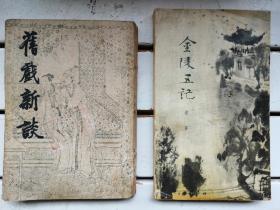 舊戲新談
金陵五記